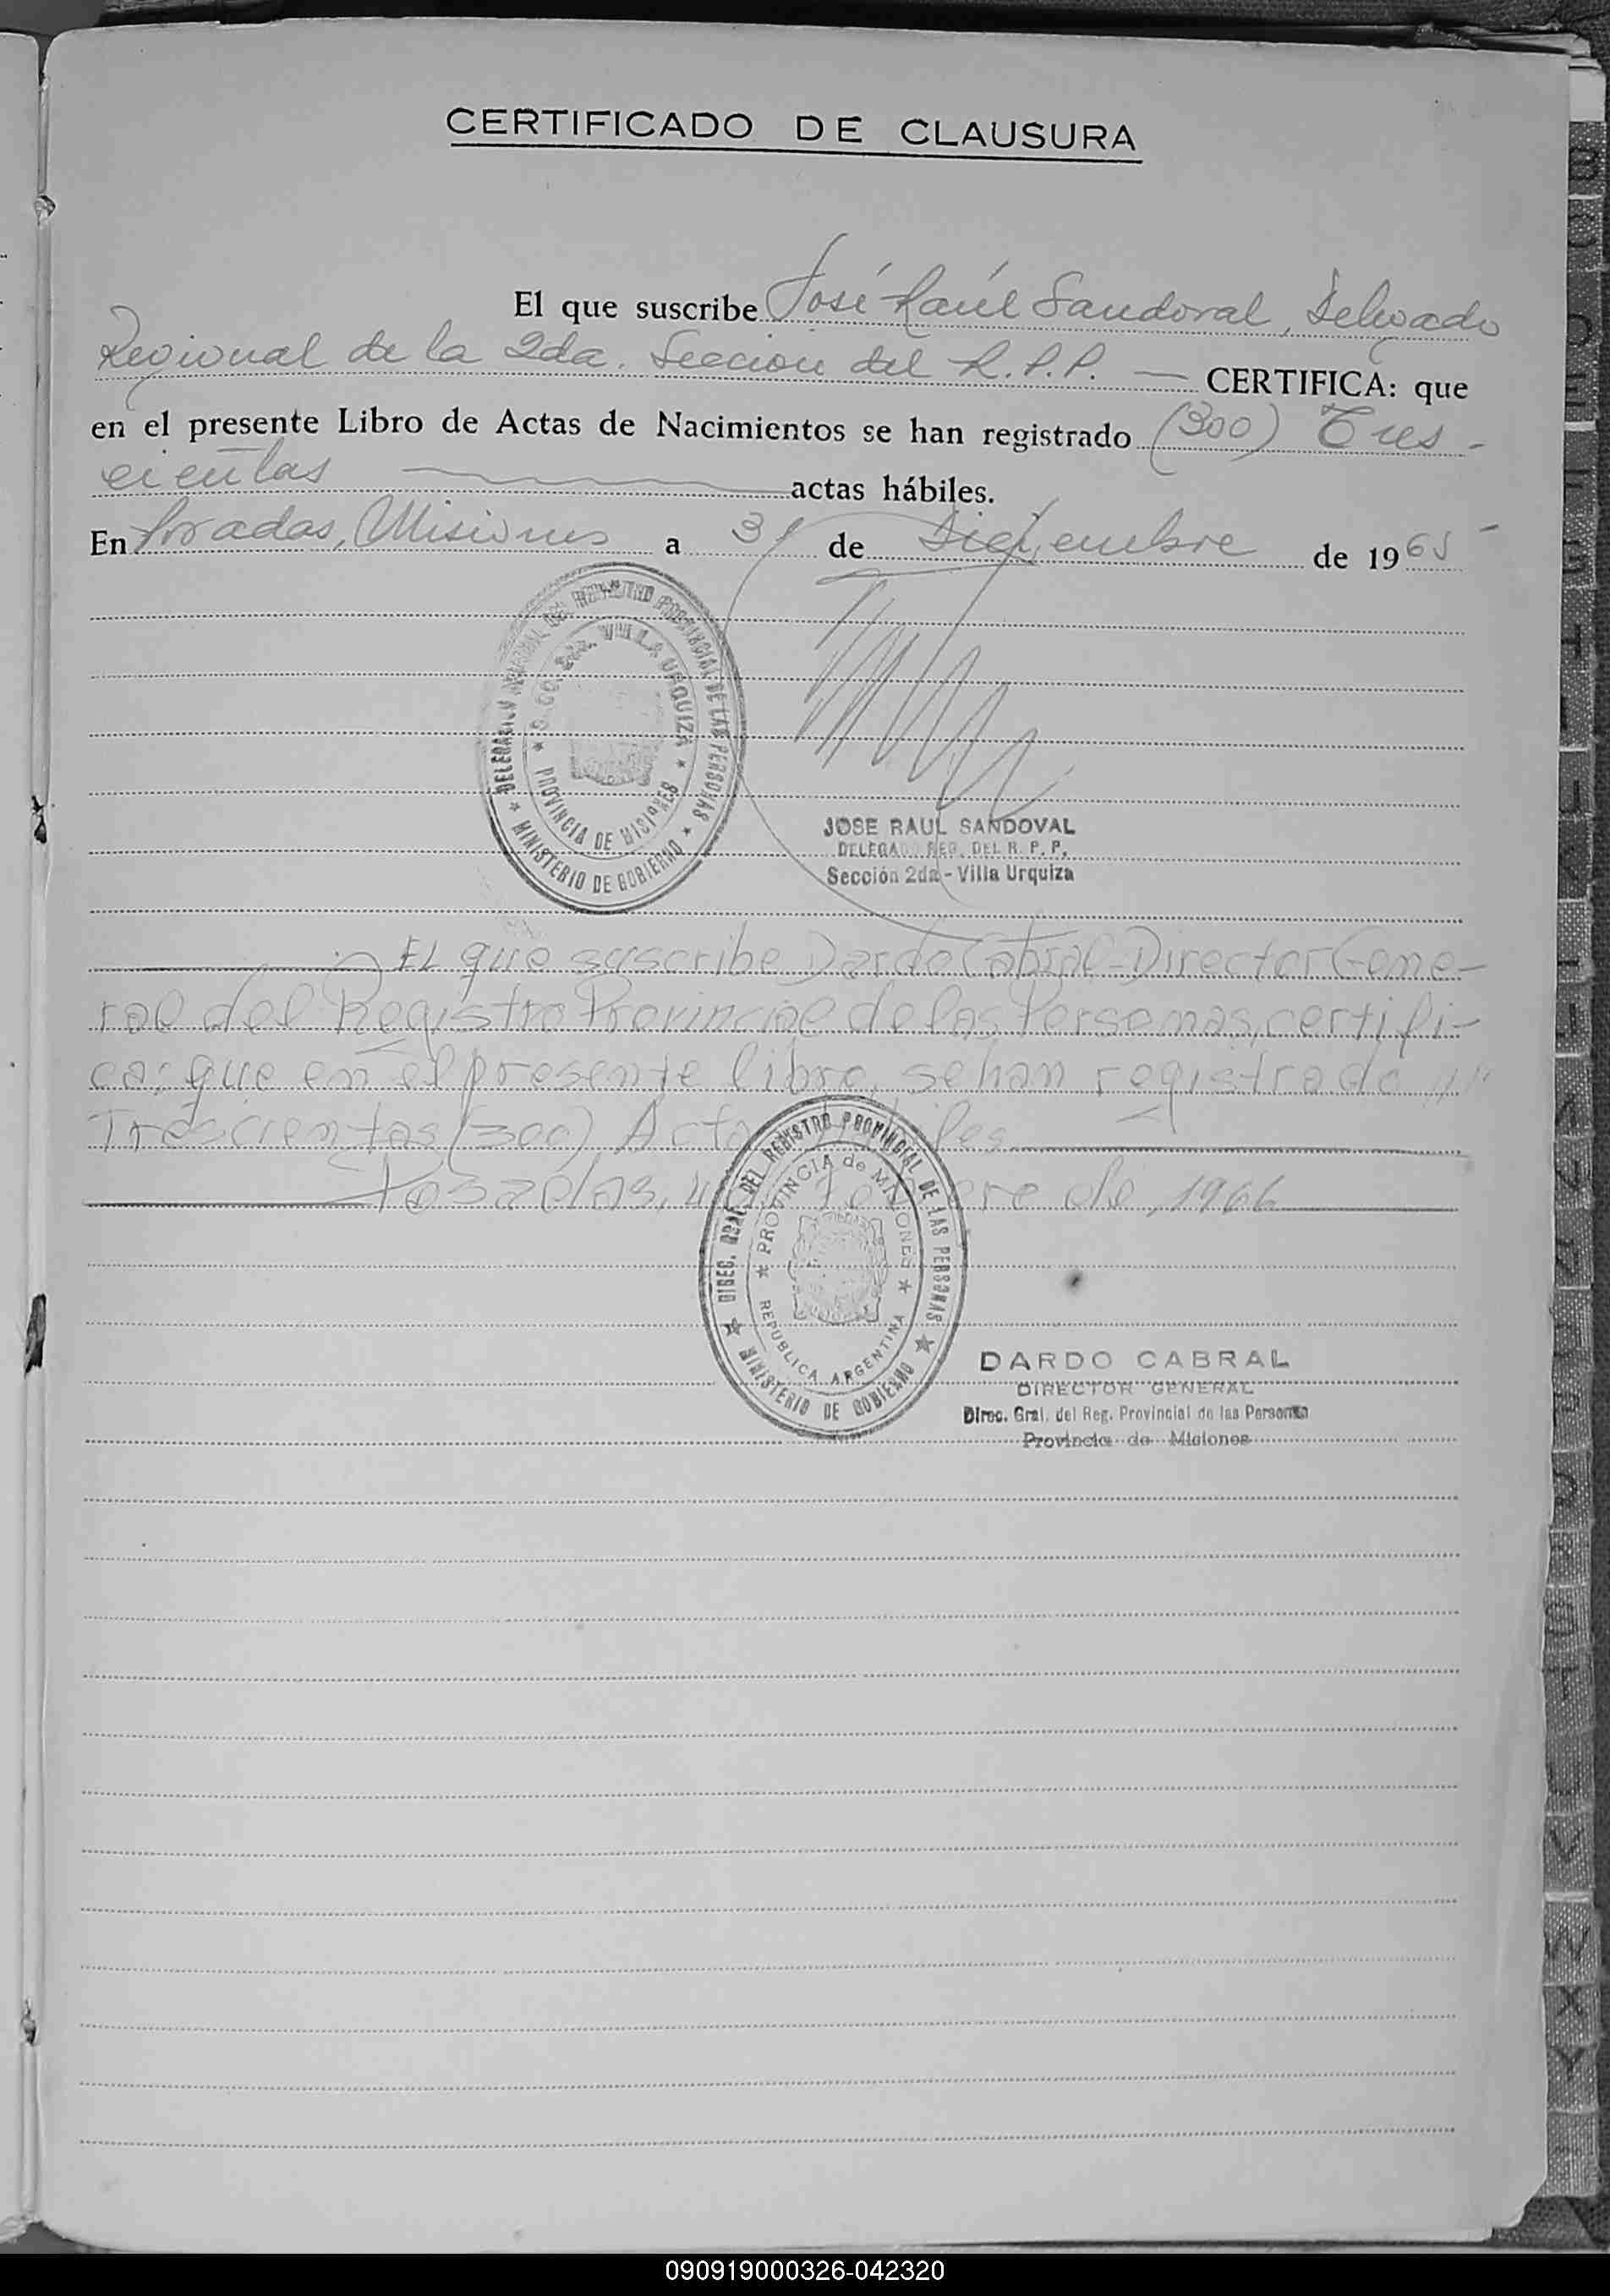 CERTIFICADO DE CLAUSURA
El que suscribe José Raúl Sandoval, Delegado
Regional de la 2da. Seccion del R.P.P. — CERTIFICA: que
en el presente Libro de Actas de Nacimientos se han registrado (300) Tres-
cientas actas hábiles.
En Posadas, Misiones a 31 de Diciembre de 1965
DELEGACION REGIONAL DEL REGISTRO PROVINCIAL DE LAS PERSONAS
2da. VILLA URQUIZA
PROVINCIA DE MISIONES
MINISTERIO DE GOBIERNO
JOSE RAUL SANDOVAL
DELEGADO REG. DEL R. P. P.
Sección 2da - Villa Urquiza
EL que suscribe Dardo Cabral - Director Gene-
ral del Registro Provincial de las Personas, certifi-
ca; que en el presente libro, se han registrado
Trescientas (300) Actas hábiles
Posadas, de 1966
DIREC. GRAL. DEL REGISTRO PROVINCIAL DE LAS PERSONAS
PROVINCIA de MISIONES
REPUBLICA ARGENTINA
MINISTERIO DE GOBIERNO
DARDO CABRAL
DIRECTOR GENERAL
Direc. Gral. del Reg. Provincial de las Personas
Provincia de Misiones
090919000326-042320